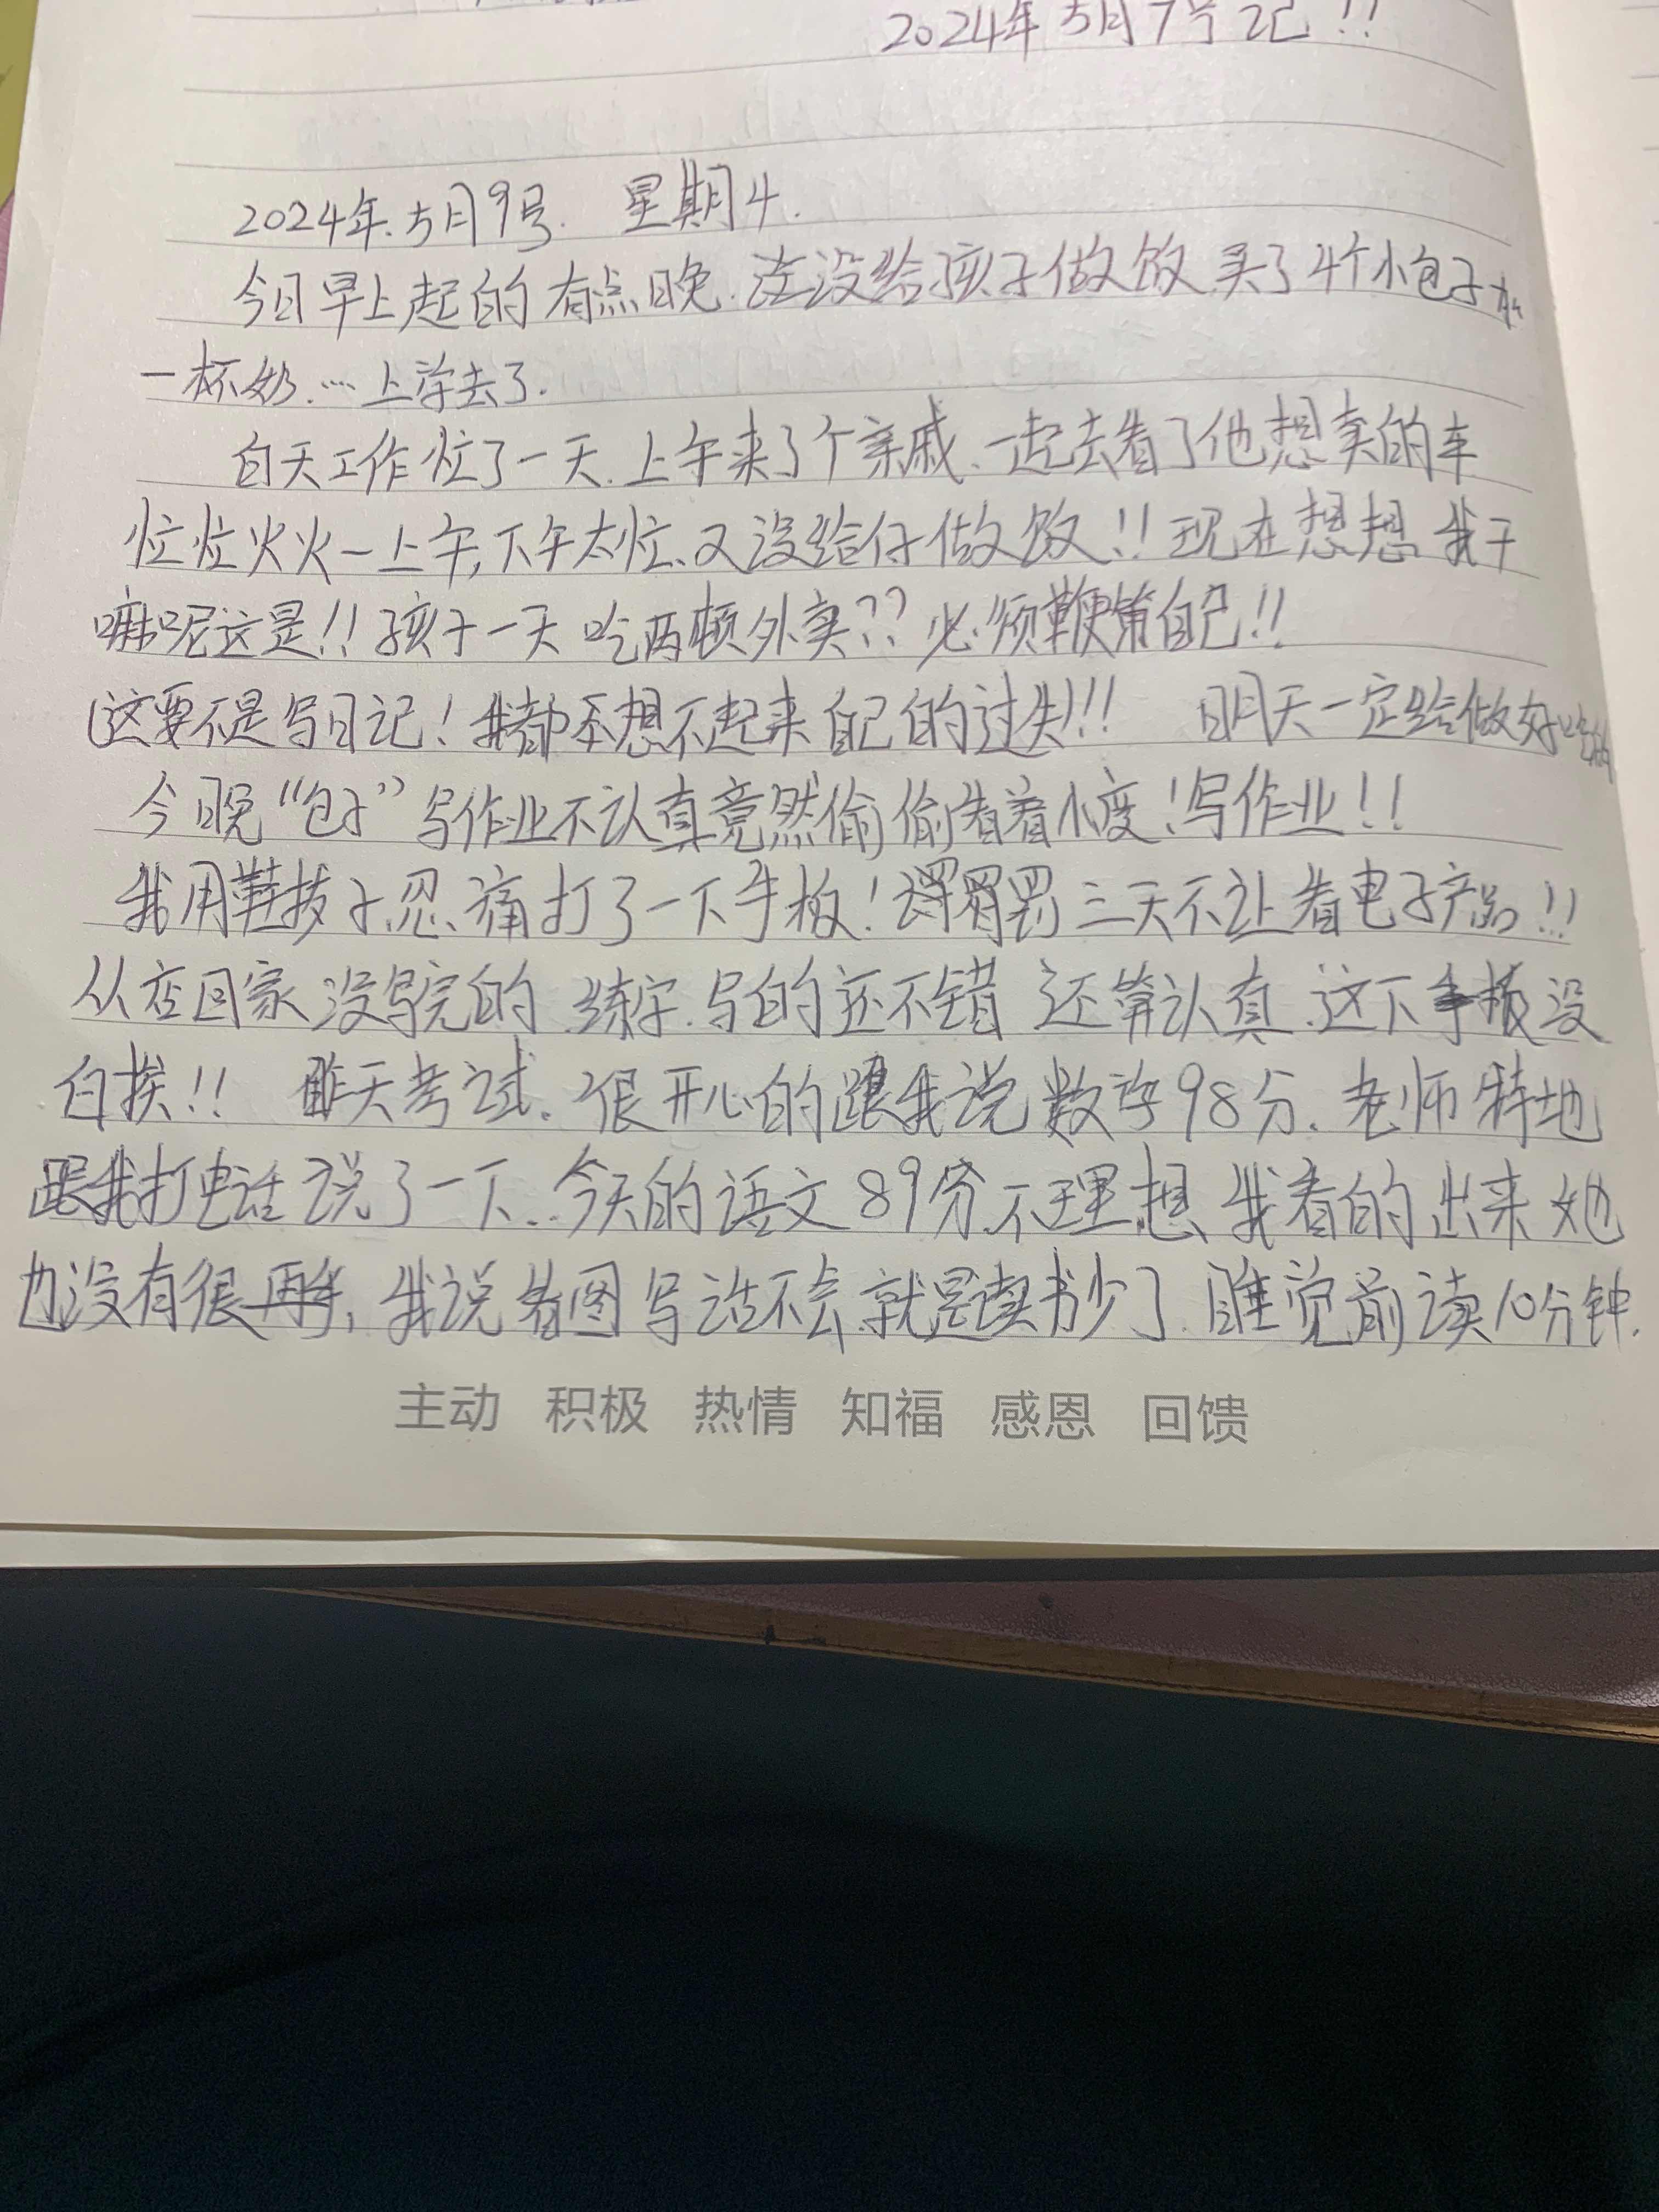 2024年5月7号记!!
2024年.5月9号. 星期4.
今日早上起的有点晚.没给孩子做饭.买了4个小包子加
一杯奶.…上学去了.
白天工作忙了一天.上午来了个亲戚.一起去看了他想卖的车
忙忙火火一上午,下午太忙.又没给仔做饭!!现在想想我干
嘛呢这是!!孩子一天吃两顿外卖??必须鞭策自己!!
(这要不是写日记!我都不想不起来自己的过失!!! 明天一定给做好吃的
今晚“包子”写作业不认真竟然偷偷看着小度!写作业!!
我用鞋拔子.忍痛打了一下手板!罚三天不让看电子产品!!
从店回家没写完的.练字.写的还不错 还算认真.这下手板没
白挨!! 昨天考试.很开心的跟我说数学98分.老师特地
跟我打电话说了一下..今天的语文89分.不理想.我看的出来她
也没有很,我说看图写话不会.就是读书少了.睡觉前读10分钟.
主动 积极 热情 知福 感恩 回馈